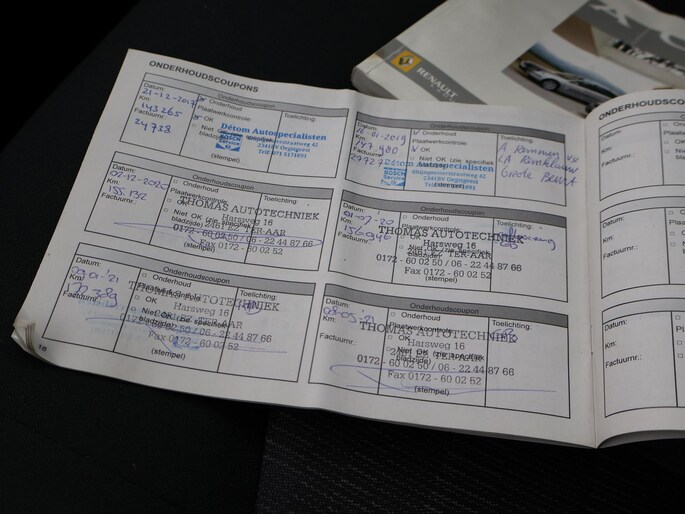 RENAULT
ONDERHOUDSCOUPONS
Onderhoudscoupon
Datum:
21-12-2017
Km:
143265
Factuurnr.:
24738
Onderhoud
Plaatwerkcontrole
OK
Niet OK (zie specifieke
bladzijde)
Détom Autospecialisten
BOSCH
Service
2341BV Oegstgeest
(stempel)
Toelichting:
Onderhoudscoupon
Datum:
2019
Km:
147.980
Factuurnr.:
Onderhoud
Plaatwerkcontrole
OK
Niet OK (zie specifieke
Détom Autospecialisten
BOSCH
Service
2341BV Oegstgeest
(stempel)
Toelichting:
Grote Beurt
Onderhoudscoupon
Datum:
02-12-2020
Km:
155.132
Factuurnr.:
Onderhoud
Plaatwerkcontrole
OK
Niet OK (zie specifieke
bladzijde)
THOMAS AUTOTECHNIEK
Harsweg 16
2461 EZ TER-AAR
0172 - 60 02 50 / 06 - 22 44 87 66
Fax 0172 - 60 02 52
(stempel)
Toelichting:
Onderhoudscoupon
Datum:
01-07-20
Km:
156946
Factuurnr.:
Onderhoud
Plaatwerkcontrole
OK
THOMAS AUTOTECHNIEK
Harsweg 16
2461 EZ TER-AAR
0172 - 60 02 50 / 06 - 22 44 87 66
Fax 0172 - 60 02 52
(stempel)
Toelichting:
Onderhoudscoupon
Datum:
'21
Km:
Factuurnr.:
Onderhoud
Plaatwerkcontrole
OK
Niet OK (zie specifieke
bladzijde)
THOMAS AUTOTECHNIEK
Harsweg 16
2461 EZ TER-AAR
0172 - 60 02 50 / 06 - 22 44 87 66
Fax 0172 - 60 02 52
(stempel)
Toelichting:
Onderhoudscoupon
Datum:
08-05-'21
Km:
Factuurnr.:
Onderhoud
Plaatwerkcontrole
OK
Niet OK (zie specifieke
bladzijde)
THOMAS AUTOTECHNIEK
Harsweg 16
2461 EZ TER-AAR
0172 - 60 02 50 / 06 - 22 44 87 66
Fax 0172 - 60 02 52
(stempel)
Toelichting:
18
ONDERHOUDSCOU
Datum:
Km:
Factuurnr.:
Datum:
Km:
Factuurnr.:
Datum:
Km:
Factuurnr.: